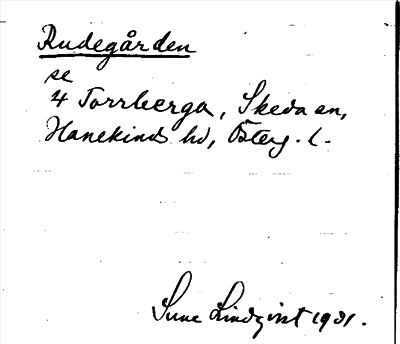 Rudegården
se
4 Torrberga, Skeda sn,
Hanekinds hd, Österg. l.
Sune Lindqvist 1931.